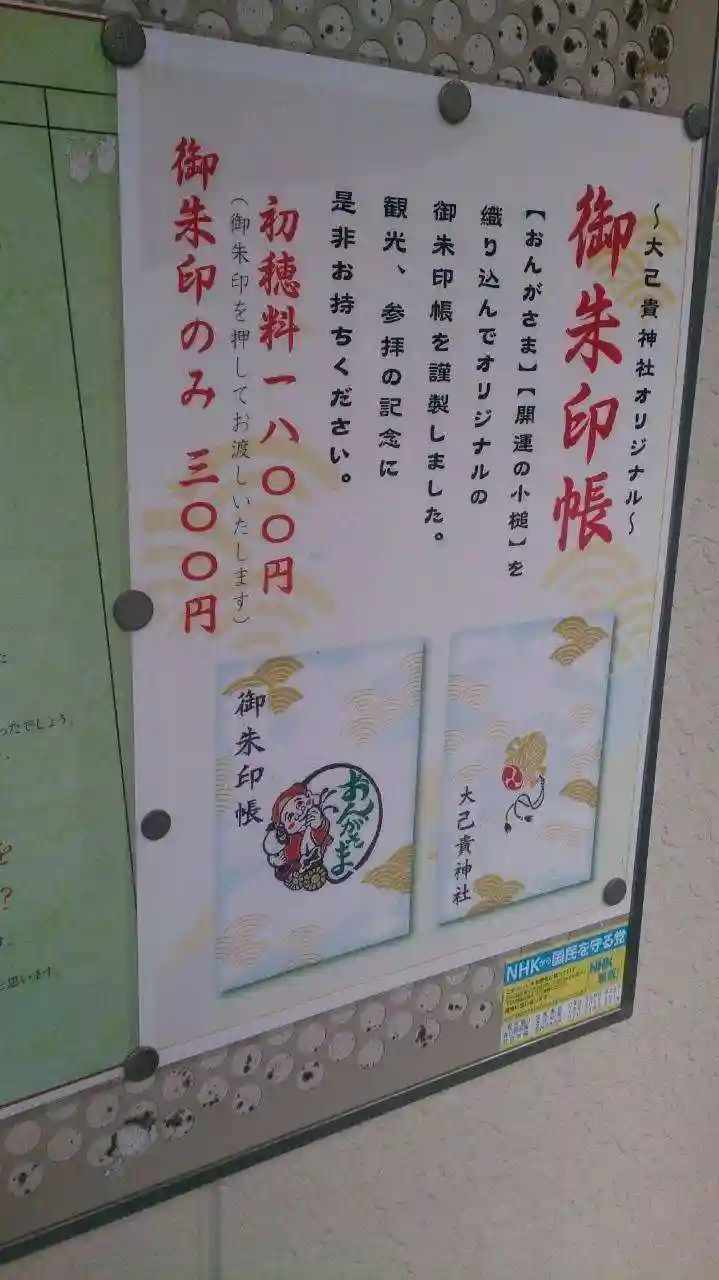 ~大己貴神社オリジナル~
御朱印帳
【おんがさま】【開運の小槌】を
織り込んでオリジナルの
御朱印帳を謹製しました。
観光、参拝の記念に
是非お持ちください。
初穂料一八〇〇円
(御朱印を押してお渡しいたします)
御朱印のみ 三〇〇円
大己貴神社
御朱印帳
おんがさま
NHKから国民を守る党
NHK
ったでしょう。
?
と思います